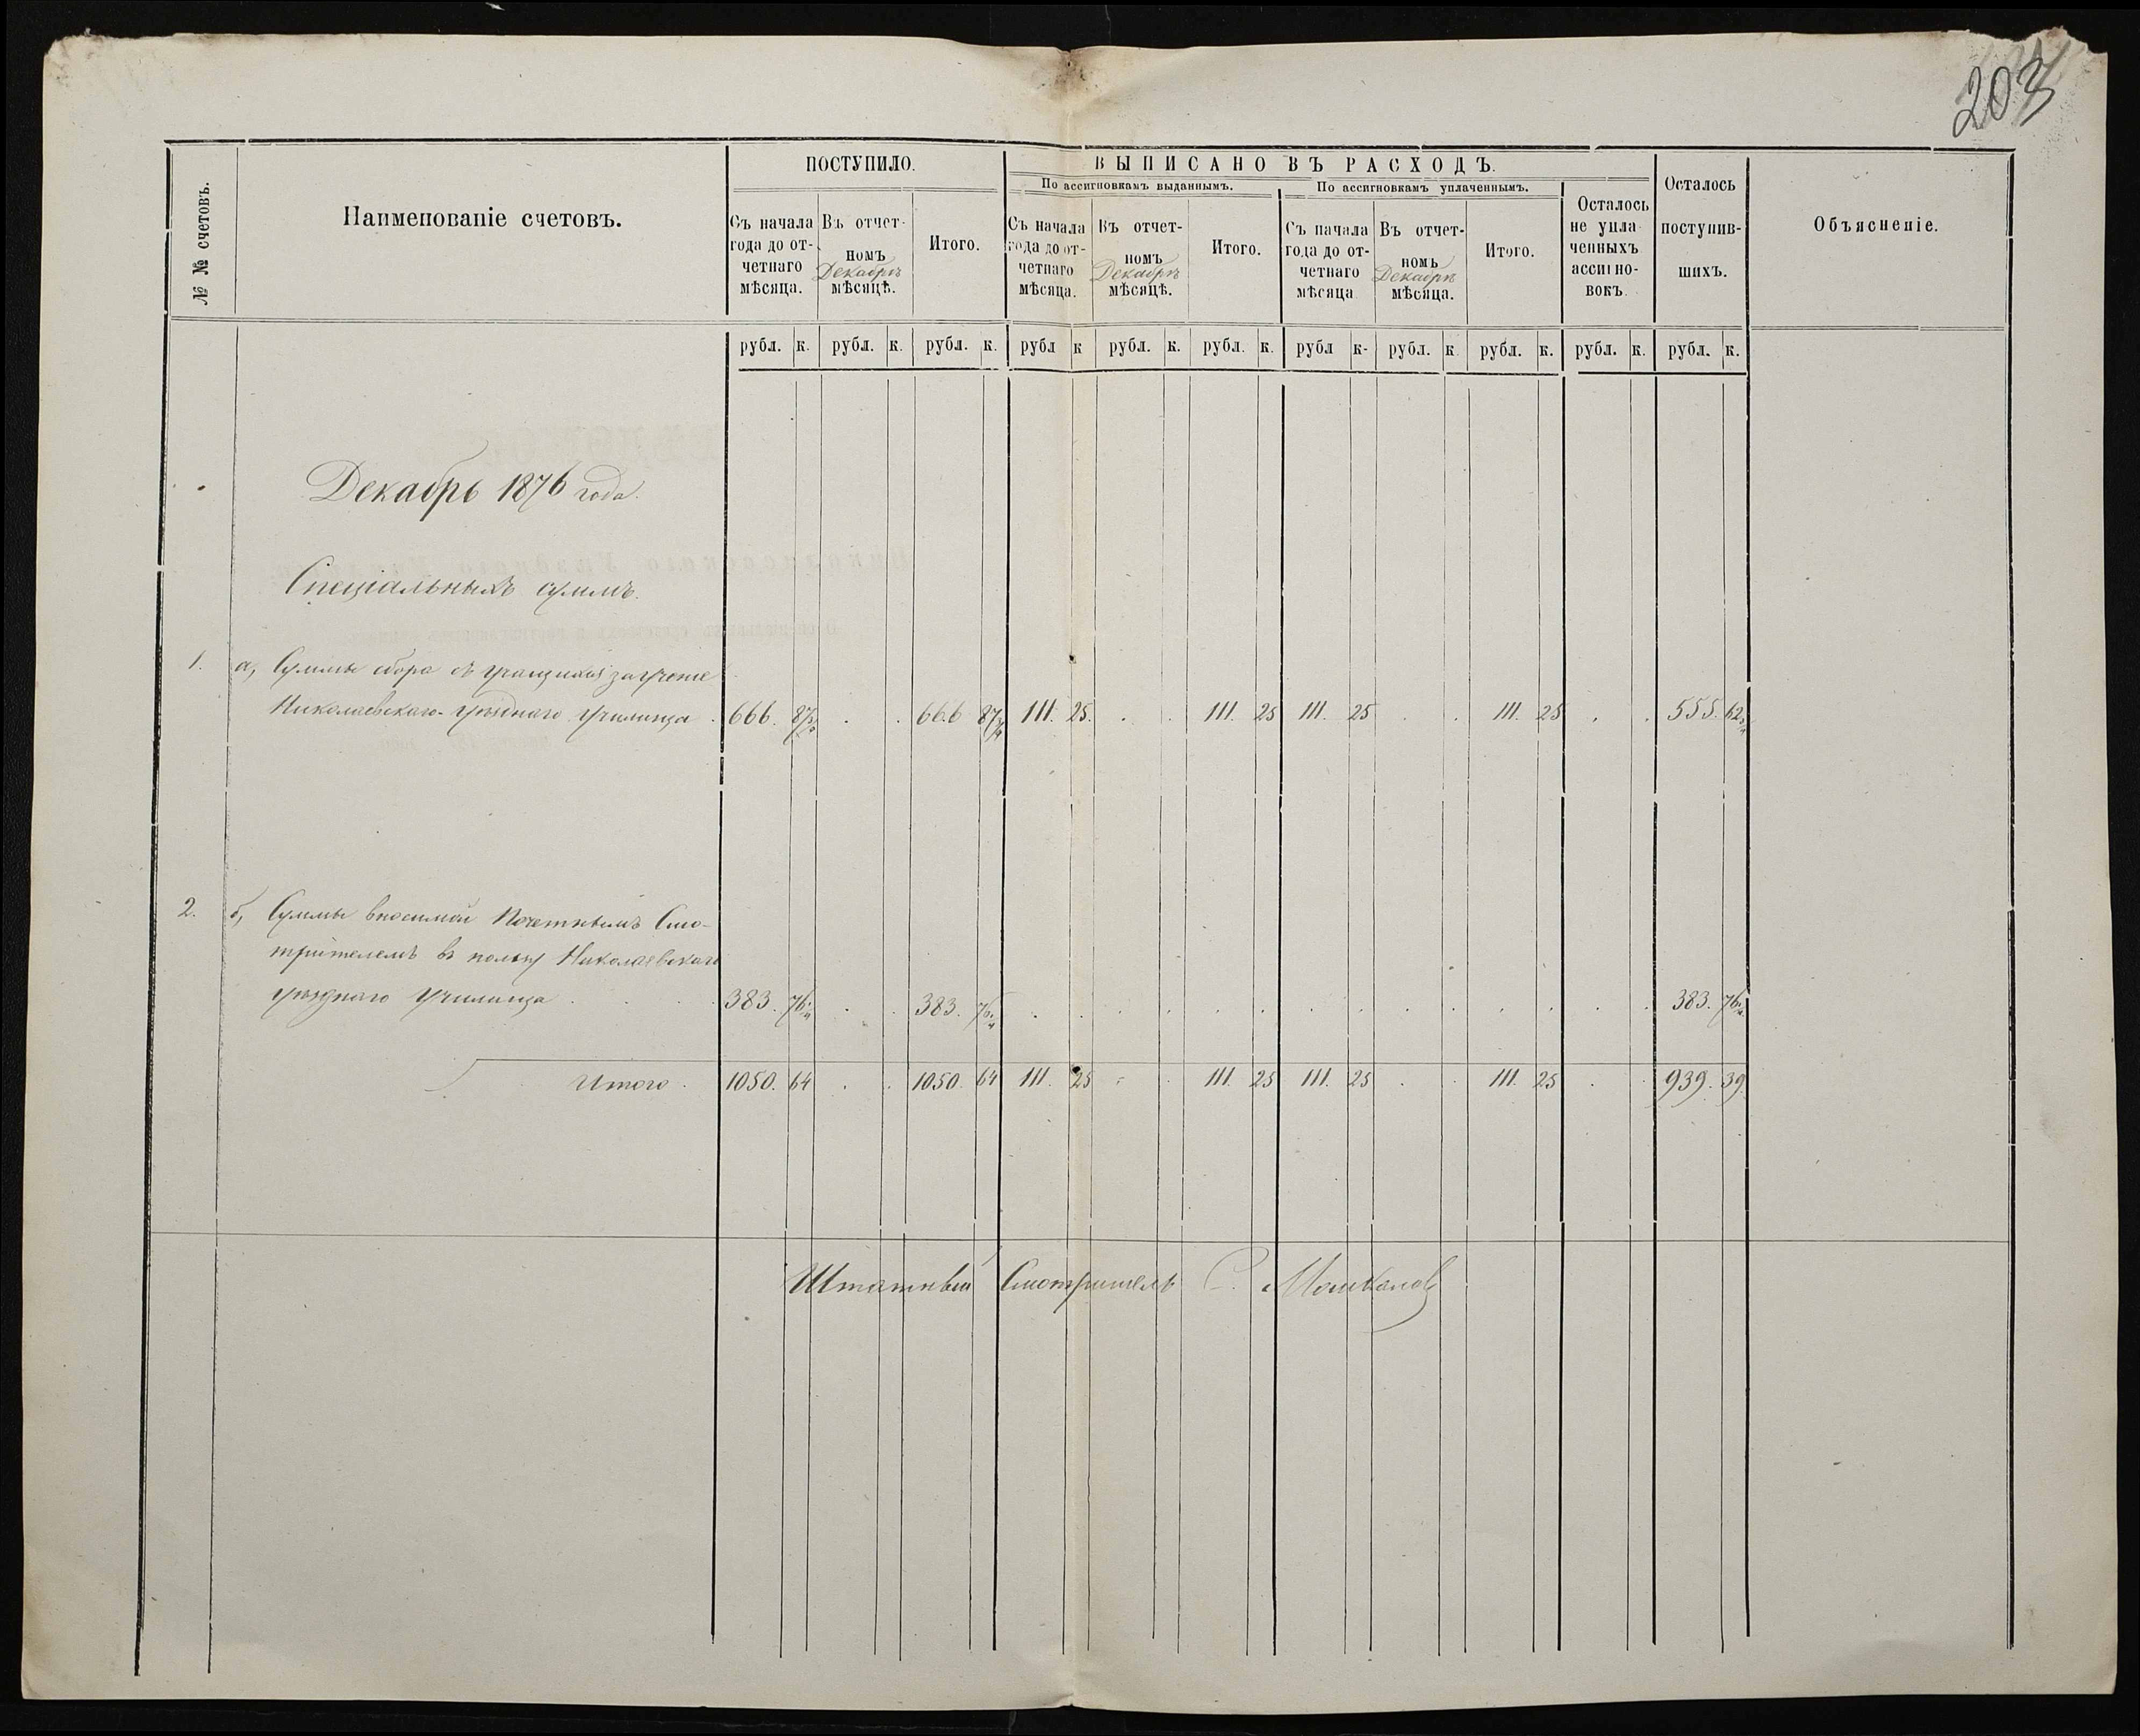 203
№ № счетовъ.
Наименованіе счетовъ.
ПОСТУПИЛО.
Съ начала года до отчетнаго мѣсяца.
Въ отчетномъ Декабрѣ мѣсяцѣ.
Итого.
ВЫПИСАНО ВЪ РАСХОДЪ.
По ассигновкамъ выданнымъ.
Съ начала года до отчетнаго мѣсяца.
Въ отчетномъ Декабрѣ мѣсяцѣ.
Итого.
По ассигновкамъ уплаченнымъ.
Съ начала года до отчетнаго мѣсяца
Въ отчетномъ Декабрѣ мѣсяца.
Итого.
Осталось не уплаченныхъ ассигновокъ.
Осталось поступившихъ.
Объясненіе.
рубл. к. рубл. к. рубл. к. рубл к рубл. к. рубл. к. рубл к. рубл. к рубл. к. рубл. к. рубл. к.
Декабрь 1876 года.
Спеціальныхъ суммъ.
1. а, Суммы сбора съ учащихся за ученіе
Николаевскаго уѣзднаго училища . 666. 87 3/4 . . 666 87 3/4 111. 25. . . 111. 25 111. 25 . . 111. 25 . . 555. 62 3/4
2. б, Суммы вносимой Почетнымъ Смо-
трителемъ въ пользу Николаевскаго
уѣзднаго училища . . . 383. 76 1/4 . . 383. 76 1/4 . . . . . . . . . . . . . . 383. 76 1/4
Итого . 1050. 64 . . 1050. 64 111. 25 . . 111. 25 111. 25 . . 111. 25 . . 939. 39.
Штатный Смотритель С. Машкановъ